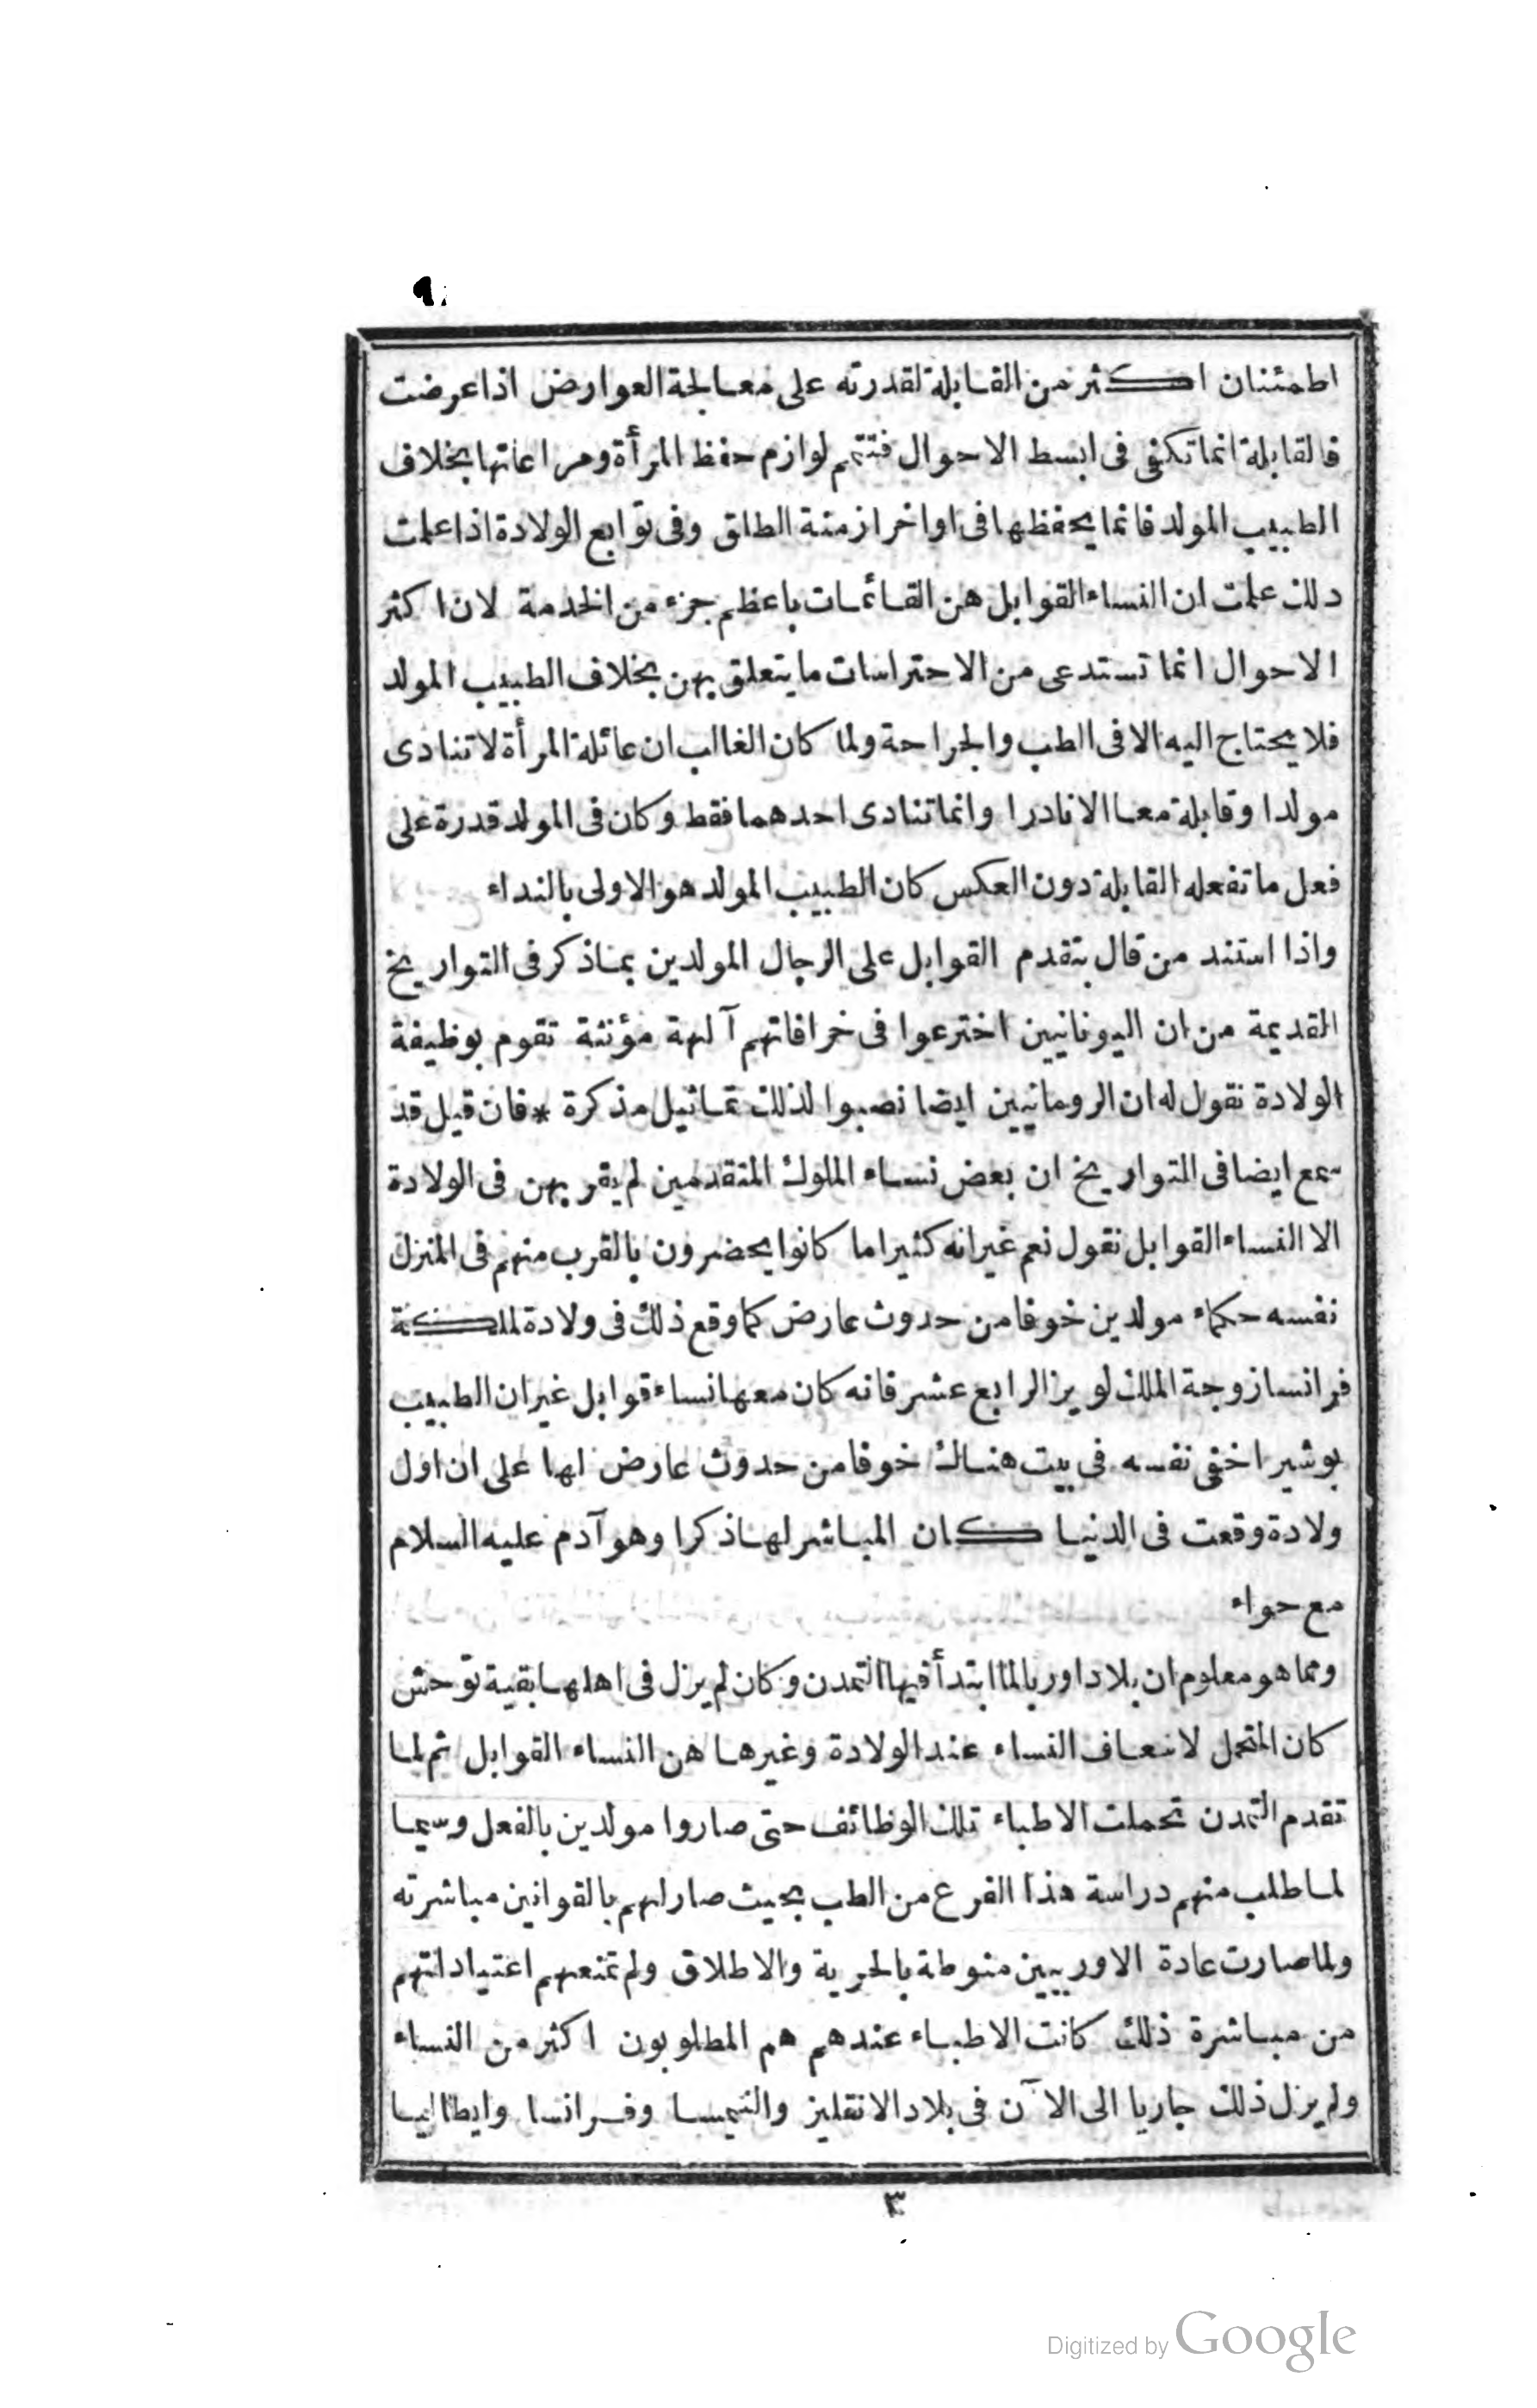 ٩
اطمئنان اكثر من القابلة لقدرته على معالجة العوارض اذا عرضت
فالقابلة انما تكفى فى ابسط الاحوال فتتمم لوازم حفظ المرأة ومراعاتها بخلاف
الطبيب المولد فانما يحفظها فى اواخر ازمنة الطلق وفى توابع الولادة اذا علمت
دلك علمت ان النساء القوابل هن القائمات باعظم جزء من الخدمة لان اكثر
الاحوال انما تستدعى من الاحتراسات ما يتعلق بهن بخلاف الطبيب المولد
فلا يحتاج اليه الا فى الطب والجراحة ولما كان الغالب ان عائلة المرأة لا تنادى
مولدا وقابلة معا الا نادرا وانما تنادى احدهما فقط وكان فى المولد قدرة على
فعل ما تفعله القابلة دون العكس كان الطبيب المولد هو الاولى بالنداء
واذا استند من قال بتقدم القوابل على الرجال المولدين بما ذكر فى التواريخ
القديمة من ان اليونانيين اخترعوا فى خرافاتهم آلهة مؤنثة تقوم بوظيفة
الولادة نقول له ان الرومانيين ايضا نصبوا لذلك تماثيل مذكرة * فان قيل قد
سمع ايضا فى التواريخ ان بعض نساء الملوك المتقدمين لم يقربهن فى الولادة
الا النساء القوابل نقول نعم غير انه كثيرا ما كانوا يحضرون بالقرب منهم فى المنزل
نفسه حكماء مولدين خوفا من حدوث عارض كما وقع ذلك فى ولادة لملكة
فرانسا زوجة الملك لويز الرابع عشر فانه كان معها نساء قوابل غير ان الطبيب
بوشير اخفى نفسه فى بيت هناك خوفا من حدوث عارض لها على ان اول
ولادة وقعت فى الدنيا كان المباشر لها ذكرا وهو آدم عليه السلام
مع حواء
ومما هو معلوم ان بلاد اوربا لما ابتدأ فيها التمدن وكان لم يزل فى اهلها بقية توحش
كان المتحمل لاسعاف النساء عند الولادة وغيرها هن النساء القوابل ثم لما
تقدم التمدن تحملت الاطباء تلك الوظائف حتى صاروا مولدين بالفعل وسيما
لما طلب منهم دراسة هذا الفرع من الطب بحيث صار لهم بالقوانين مباشرته
ولما صارت عادة الاوربيين منوطة بالحرية والاطلاق ولم تمنعهم اعتياداتهم
من مباشرة ذلك كانت الاطباء عندهم هم المطلوبون اكثر من النساء
ولم يزل ذلك جاريا الى الآن فى بلاد الانقليز والنيمسا وفرانسا وايطاليا
٣
Digitized by Google